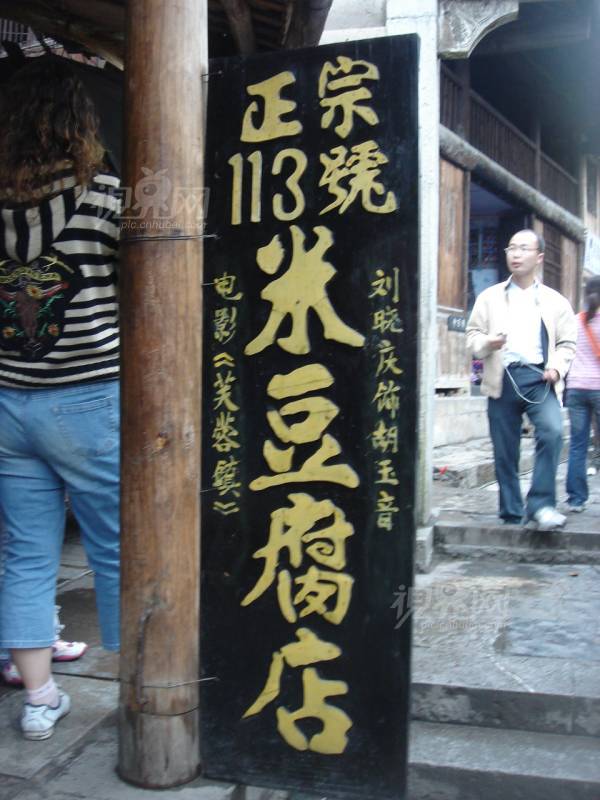 正宗
113號
米豆腐店
刘晓庆饰胡玉音
电影《芙蓉鎮》
视界网
pic.cnhubei.com
视界网